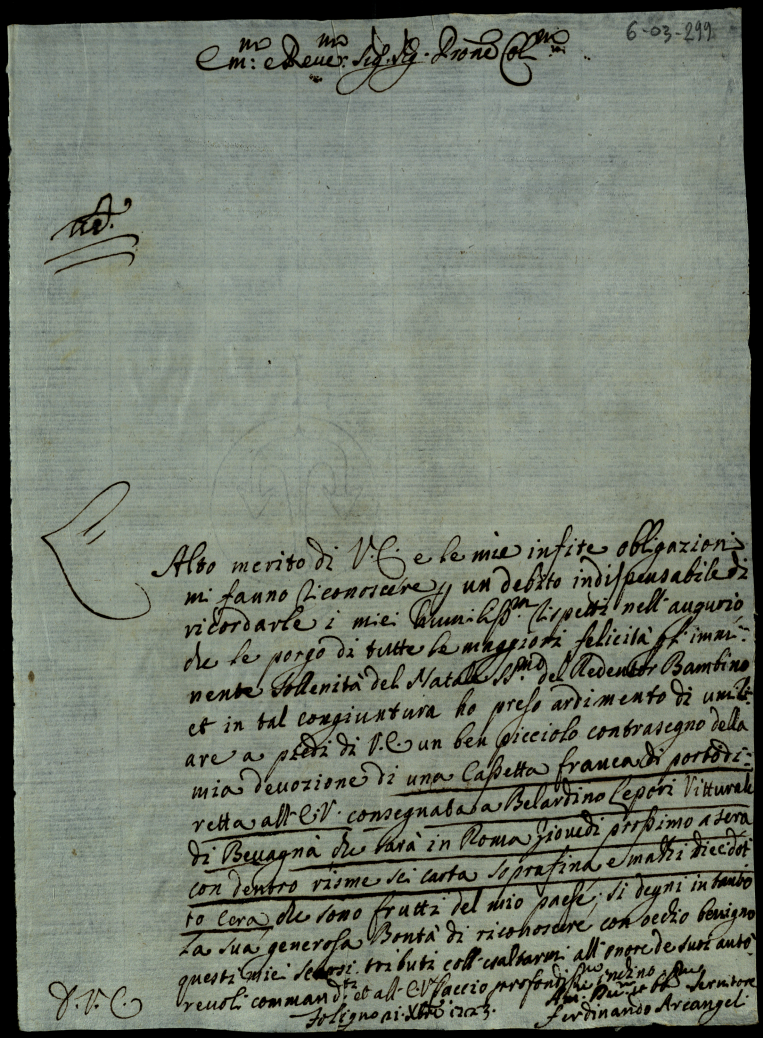 6-03-299
Em:mo e Reve:mo Sig. Sig. Prone Col:mo
L'Alto merito di V.E. e le mie infite obligazioni
mi fanno riconoscere p un debito indispensabile di
ricordarle i miei humiliss:mi rispetti nell'augurio,
che le porgo di tutte le maggiori felicità p l'immi-
nente sollenità del Natale SS:mo del Redentor Bambino
et in tal congiuntura ho preso ardimento di umili-
are a piedi di V.E. un ben picciolo contrasegno della
mia devozione di una Cassetta franca di porto di-
retta all'E.V. consegnata a Belardino Lepori Vitturale
di Bevagna che sarà in Roma Giovedì prossimo a sera
con dentro risme sei carta soprafina e mazzi dieciotto
to Cera che sono frutti del mio paese; si degni in tanto
la sua generosa Bontà di riconoscere con occhio benigno
questi miei tributi coll'esaltarmi all'onore de suoi auto-
revoli commandi et all'E.V. faccio profondiss:mo inchino
D.V.E.
Foligno 21 Xbre 1723.
Servitore
Ferdinando Arcangeli